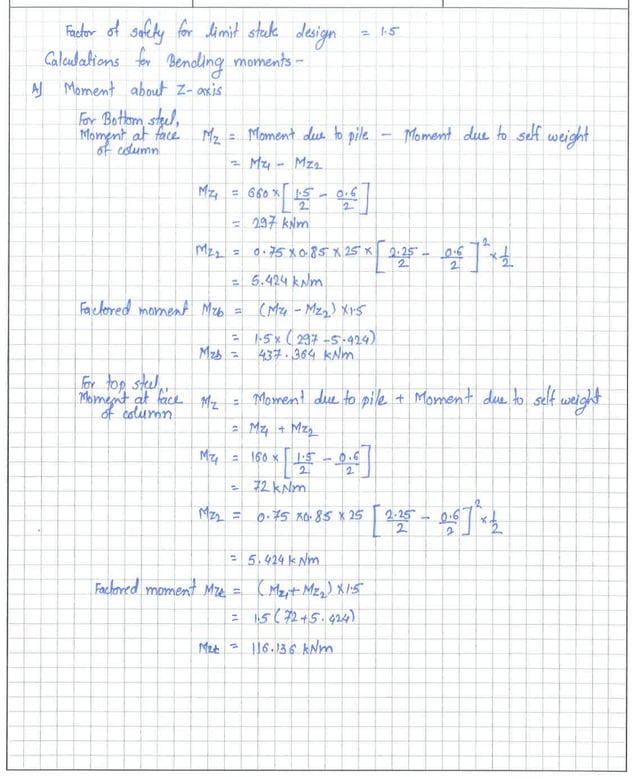 Factor of safety for limit state design = 1.5
Calculations for Bending moments -
A) Moment about Z-axis
For Bottom steel,
Moment at face of column Mz = Moment due to pile - Moment due to self weight
= Mz1 - Mz2
Mz1 = 660 x [1.5/2 - 0.6/2]
= 297 kNm
Mz2 = 0.75 x 0.85 x 25 x [2.25/2 - 0.6/2]² x 1/2
= 5.424 kNm
Factored moment Mzb = (Mz1 - Mz2) x 1.5
= 1.5 x (297 - 5.424)
Mzb = 437.364 kNm
For top steel,
Moment at face of column Mz = Moment due to pile + Moment due to self weight
= Mz1 + Mz2
Mz1 = 160 x [1.5/2 - 0.6/2]
= 72 kNm
Mz2 = 0.75 x 0.85 x 25 [2.25/2 - 0.6/2]² x 1/2
= 5.424 kNm
Factored moment Mzt = (Mz1 + Mz2) x 1.5
= 1.5 (72 + 5.424)
Mzt = 116.136 kNm